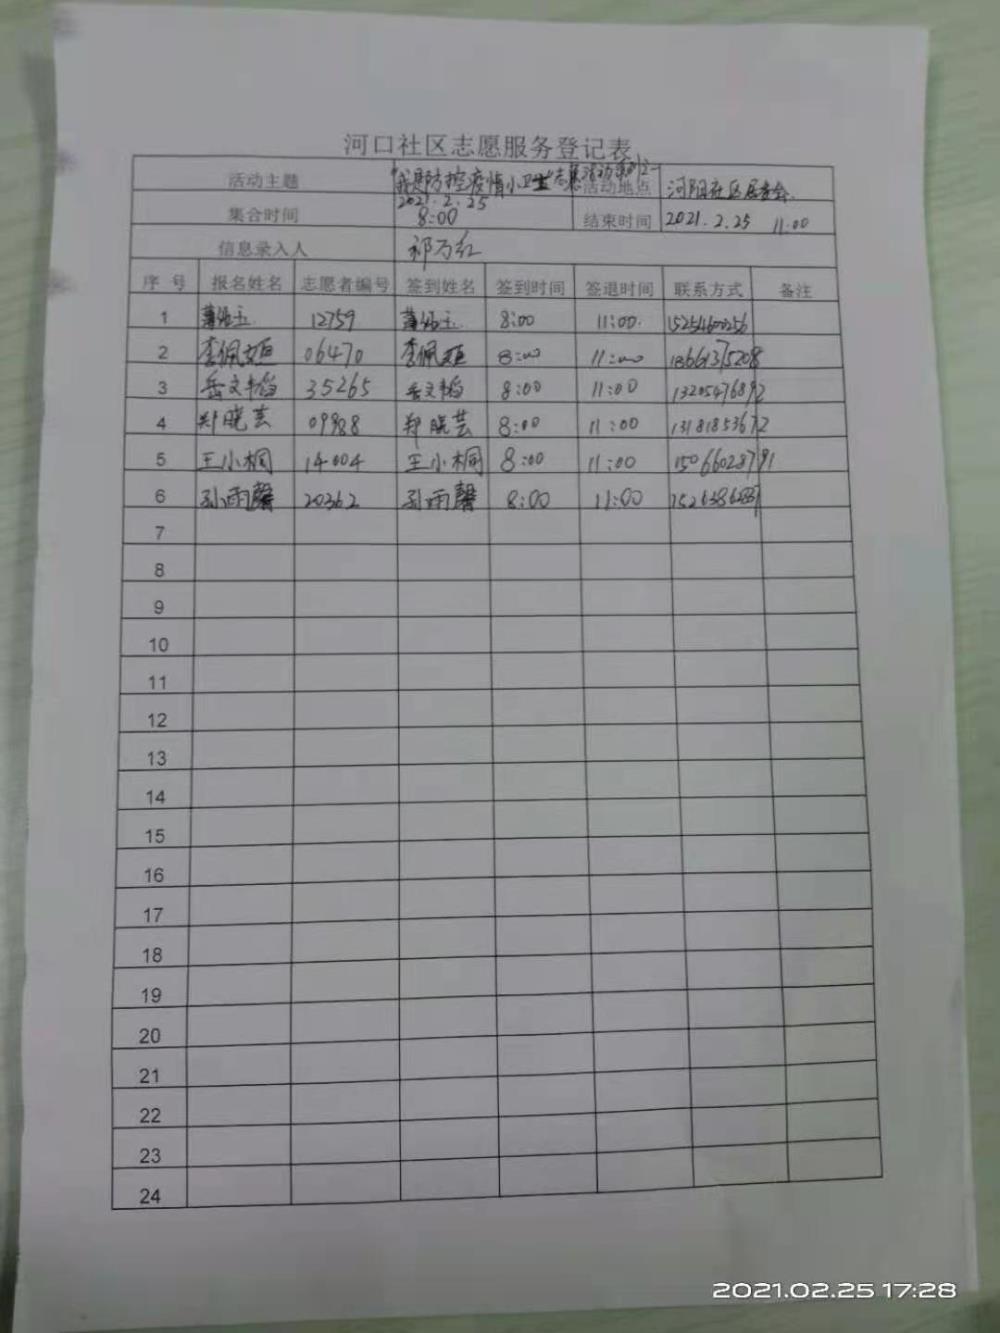 河口社区志愿服务登记表
活动主题 "我是防控疫情小卫士"志愿活动 活动地点 河阳社区居委会
集合时间 2021.2.25 8:00 结束时间 2021.2.25 11:00
信息录入人 祁万红
序号 报名姓名 志愿者编号 签到姓名 签到时间 签退时间 联系方式 备注
1 12759 8:00 11:00 15254600256
2 李佩 06470 李佩 8:00 11:00 18661375208
3 岳文韬 35265 岳文韬 8:00 11:00 13205476892
4 郑晓芸 09988 郑晓芸 8:00 11:00 13181853672
5 王小桐 14004 王小桐 8:00 11:00 15066028791
6 孙雨馨 20362 孙雨馨 8:00 11:00
7
8
9
10
11
12
13
14
15
16
17
18
19
20
21
22
23
24
2021.02.25 17:28